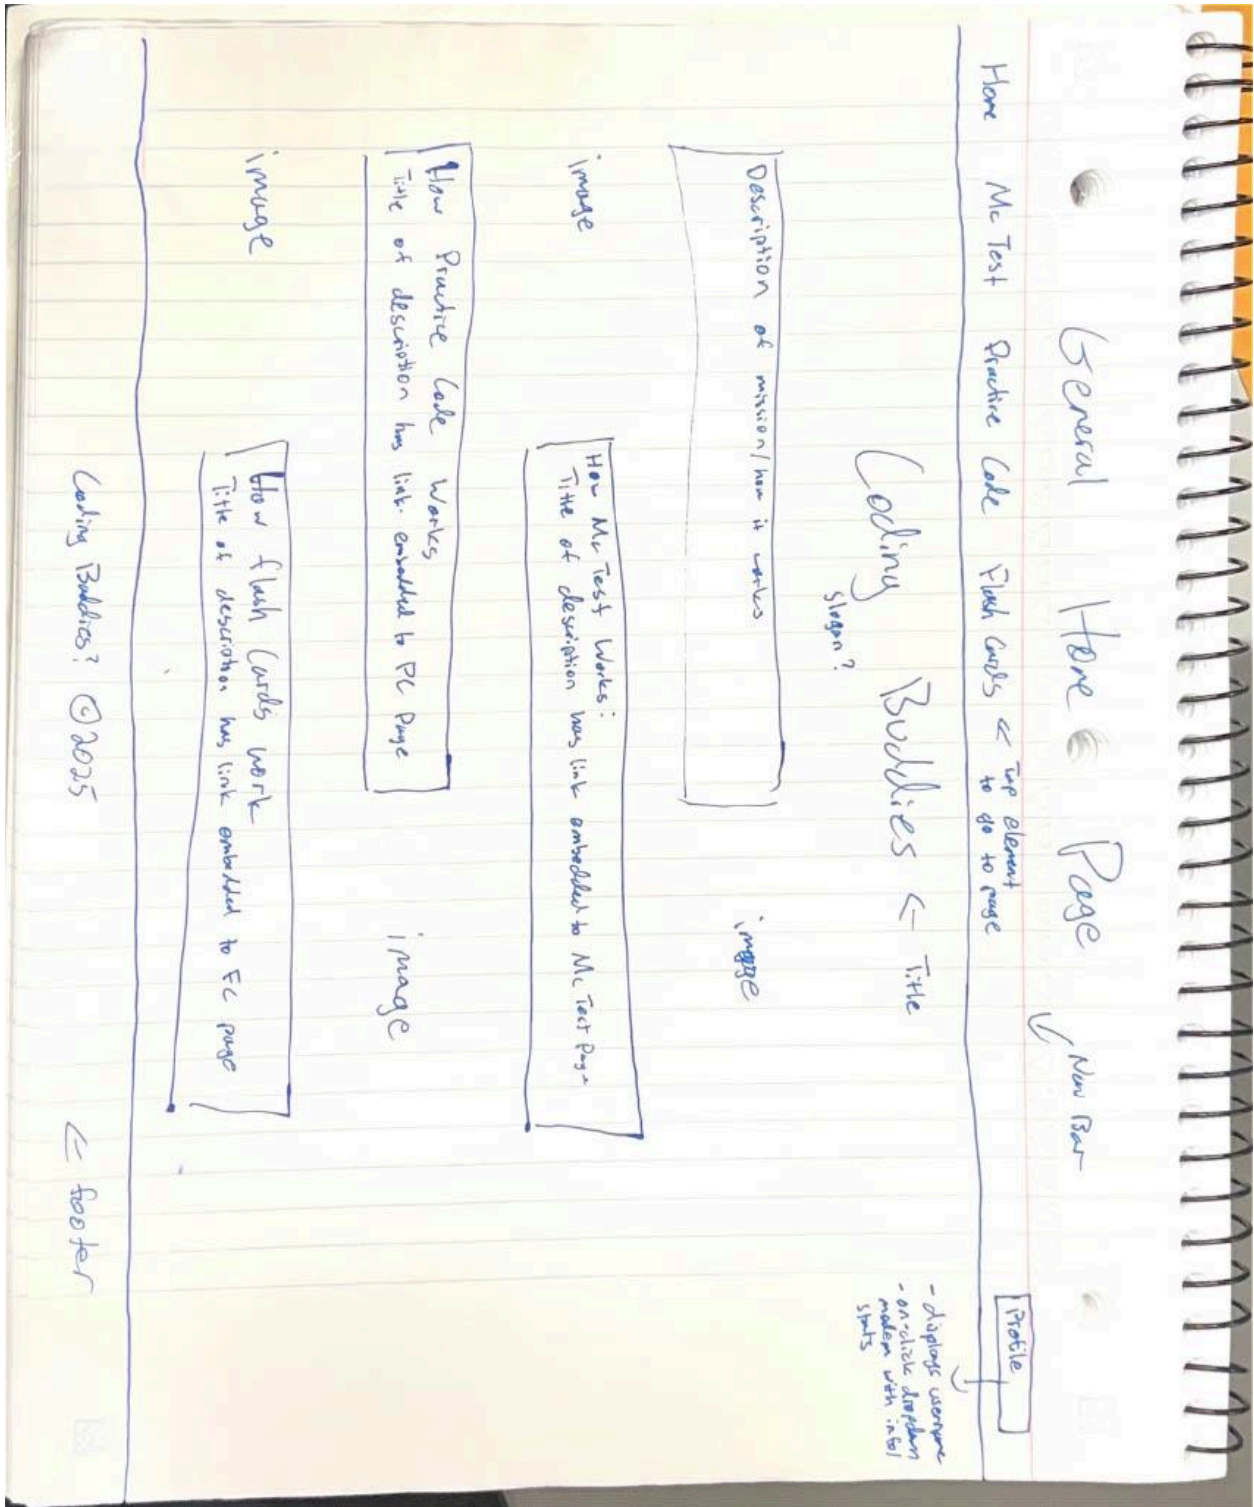 General Home Page
Nav Bar
Home Mc Test Practice Code Flash Cards < Tap element
to go to page
Profile
- displays username
- on-click dropdown
modem with info/
stats
Coding Buddies <- Title
slogan?
Description of mission/how it works
image
image
How Mc Test Works:
Title of description has link embedded to Mc Test Page
How Practice Code Works
Title of description has link embedded to PC Page
image
image
How flash Cards work
Title of description has link embedded to FC page
Coding Buddies? ©2025
<- footer